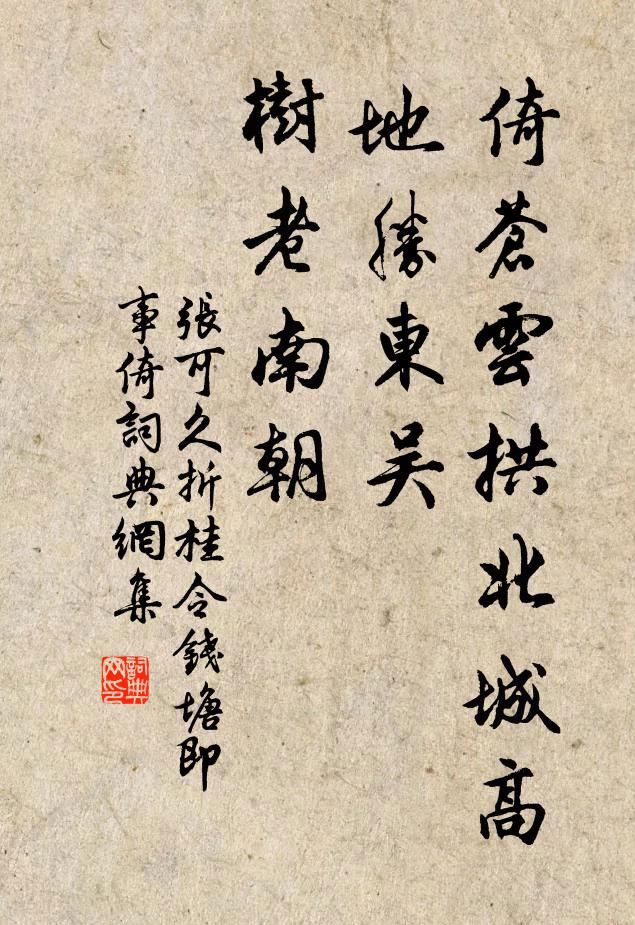 倚蒼雲拱北城高
地勝東吴
樹老南朝
張可久折桂令錢塘即
事倚詞典網集
詞典網印